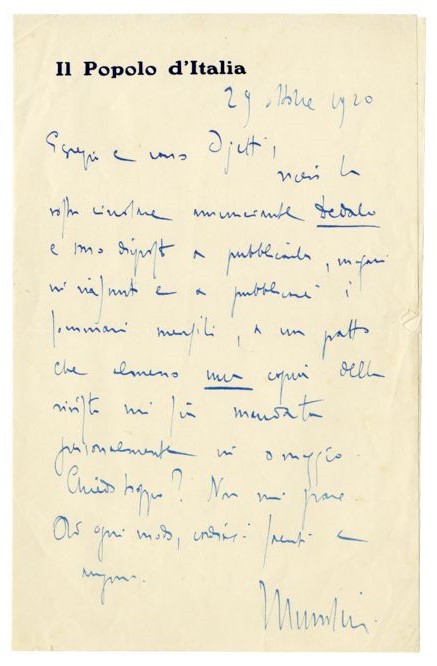 Il Popolo d'Italia
29 ottobre 1920
Egregio e caro Ojetti,
ricevo la
vostra circolare annunciante Dedalo
e sono disposto a pubblicarla, magari
in riassunto e a pubblicare i
sommari mensili, a un patto
che almeno una copia della
rivista mi sia mandata
personalmente in omaggio.
Chiedo troppo? Non mi pare.
Ad ogni modo, cordiali saluti e
auguri.
Mussolini